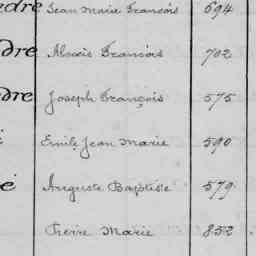 edre Jean Marie François 694
dre Alexis François 702
dre Joseph François 575
Emile Jean Marie 590
é Auguste Baptiste 579
Pierre Marie 832